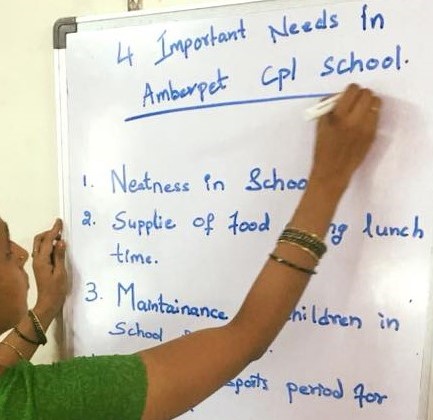 4 Important Needs In
Amberpet Cpl School.
1. Neatness in Schoo
2. Supplie of food ng lunch
time.
3. Maintainance hildren in
School
sports period for